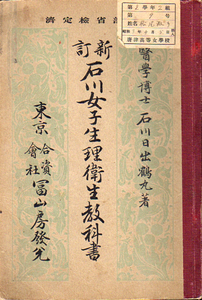 省檢定濟
醫學博士 石川日出鶴丸著
新訂
石川女子生理衛生教科書
東京 合資會社 冨山房發兌